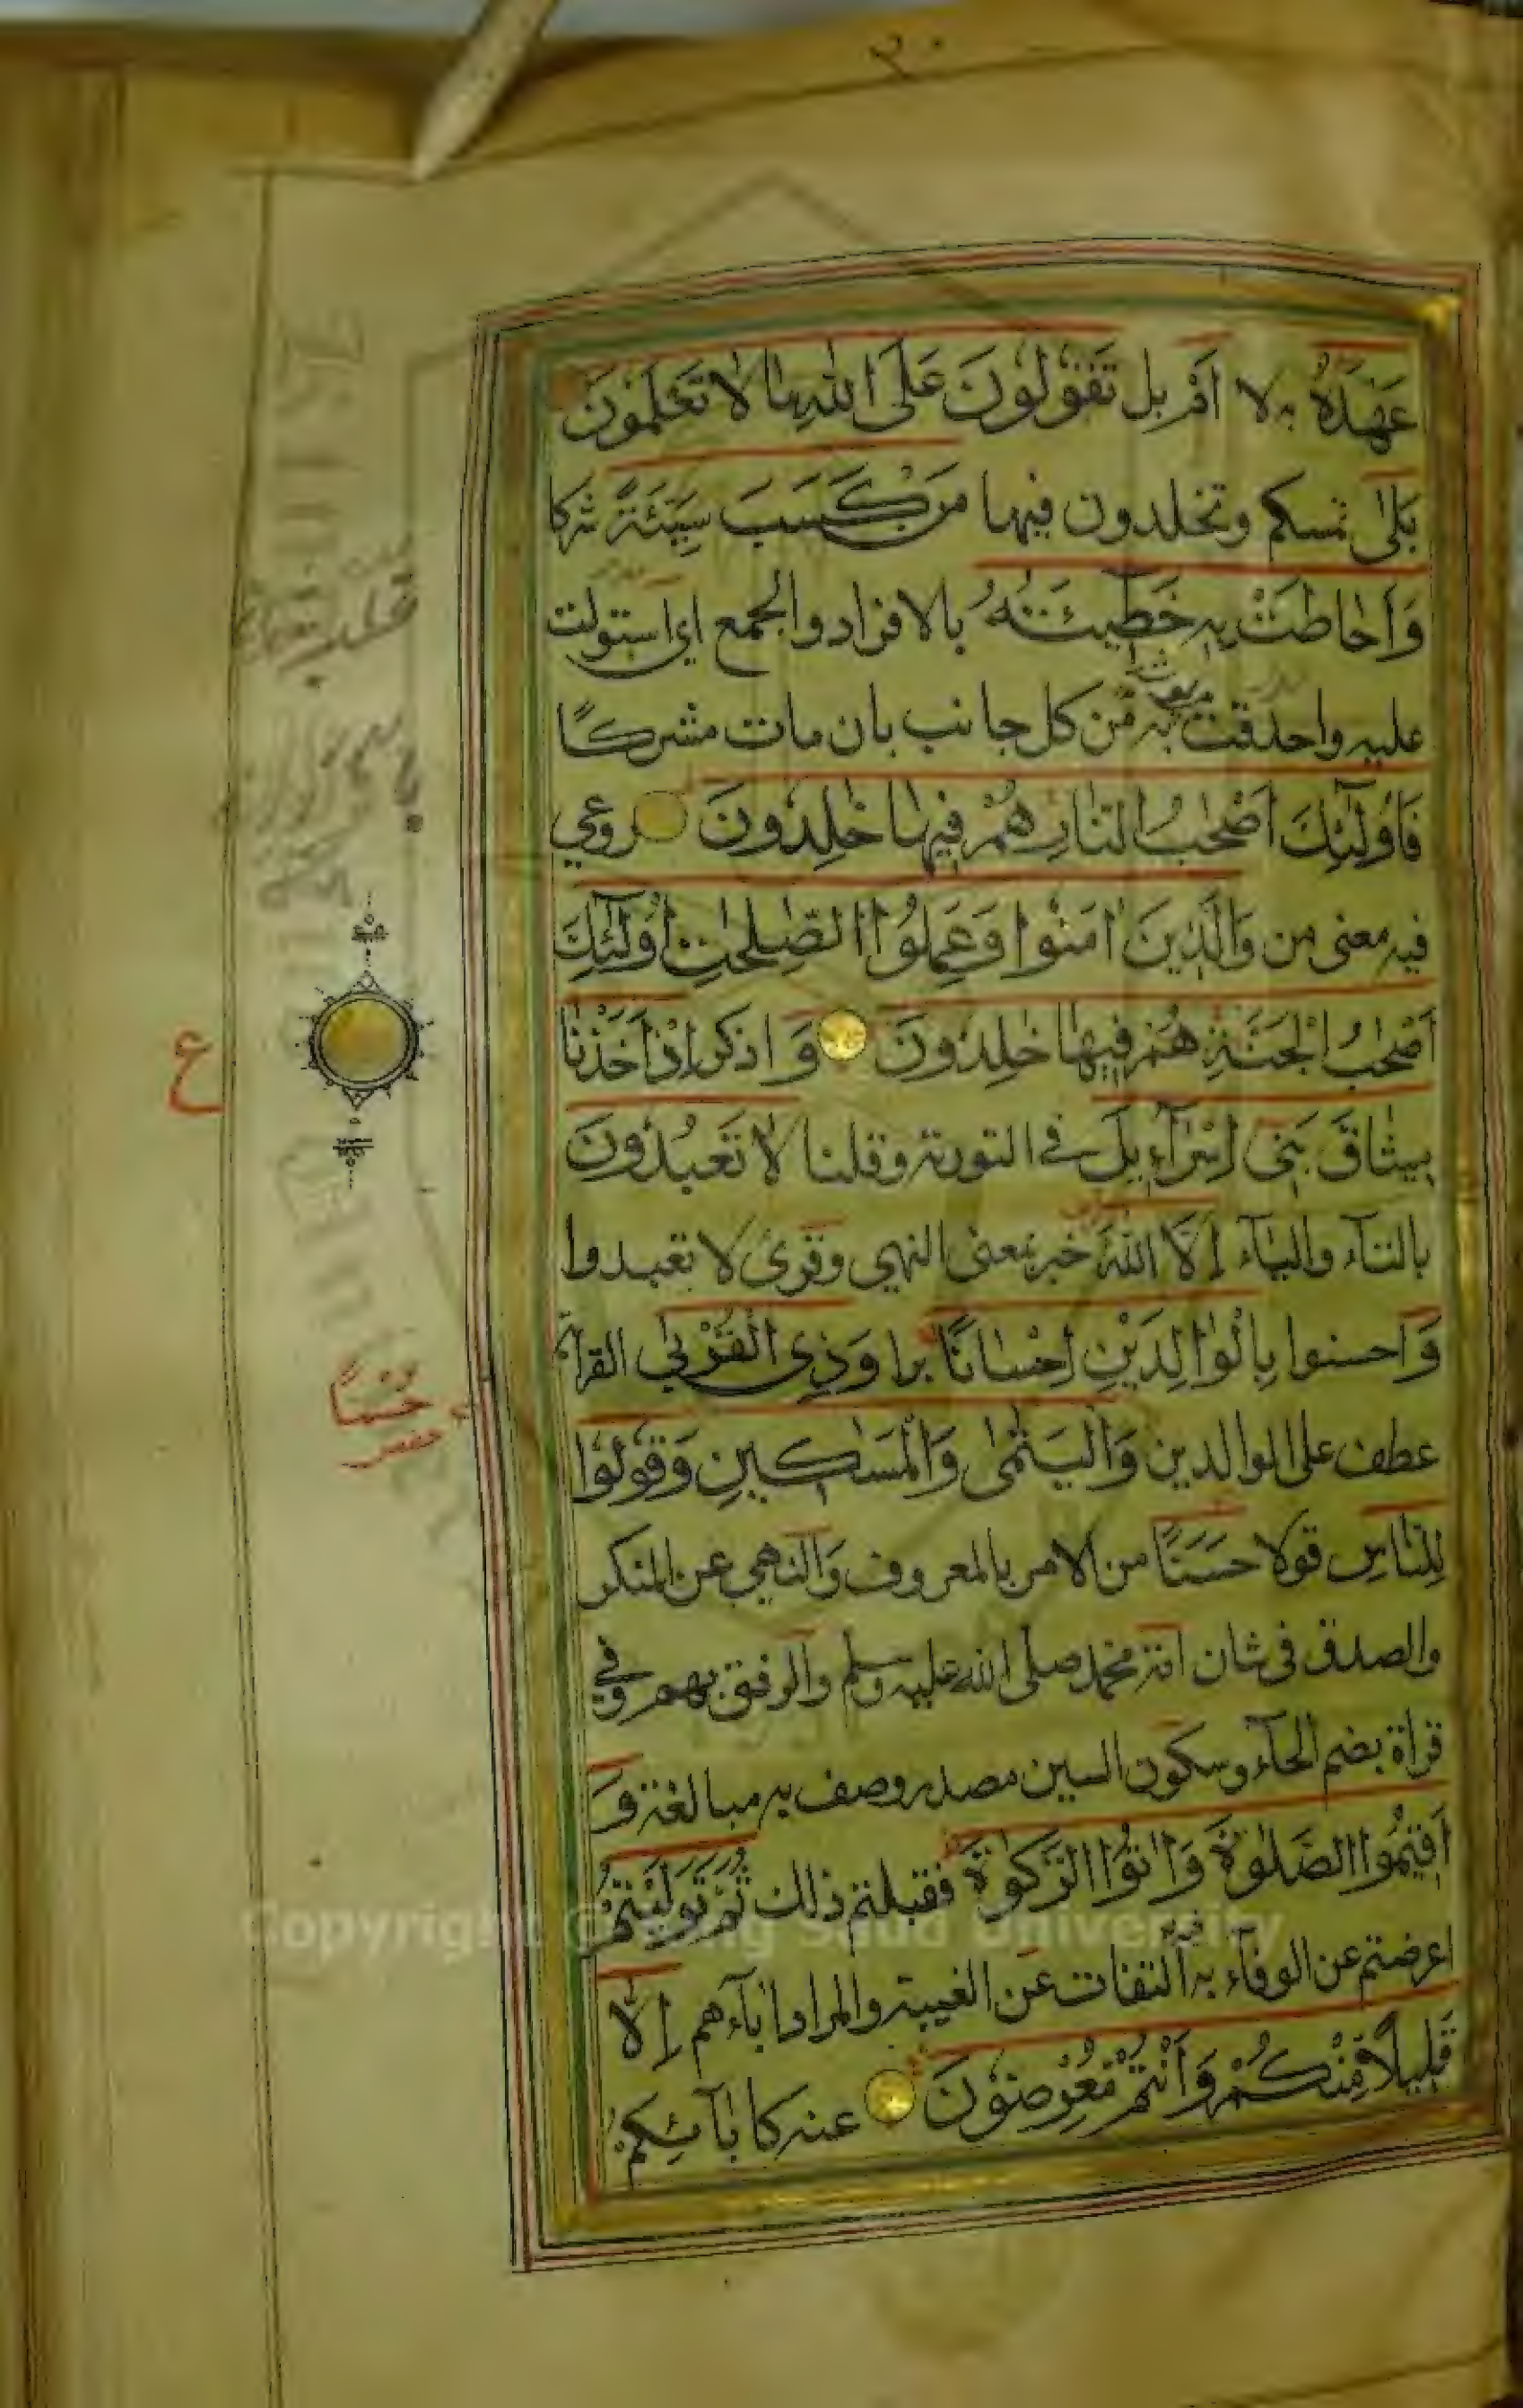 ٢٠
عَهْدَهُ به لا اَمْ بل تَقُولُونَ عَلَى اللّٰهِ مَا لَا تَعْلَمُونَ
بَلٰى تمسكم وتخلدون فيها مَنْ كَسَبَ سَيِّئَةً شركا
وَاَحَاطَتْ بِهِ خَطِيئَتُهُ بالافراد والجمع اي استولت
عليه واحدقت به من كل جانب بان مات مشركًا
فَاُولٰئِكَ اَصْحٰبُ النَّارِ هُمْ فِيهَا خٰلِدُونَ روعي
فيه معنى من وَالَّذِينَ اٰمَنُوا وَعَمِلُوا الصّٰلِحٰتِ اُولٰئِكَ
اَصْحٰبُ الْجَنَّةِ هُمْ فِيهَا خٰلِدُونَ وَ اذكر اِذْ اَخَذْنَا
مِيثَاقَ بَنِي اِسْرَآءِيلَ في التورية وقلنا لَا تَعْبُدُونَ
بالتآء واليآء اِلَّا اللّٰهَ خبر بمعنى النهي وقرئ لا تعبدوا
وَاحسنوا بِالْوَالِدَيْنِ اِحْسَانًا برا وَذِي الْقُرْبٰى القرابة
عطف على الوالدين وَالْيَتٰمٰى وَالْمَسَاكِينِ وَقُولُوا
لِلنَّاسِ قولا حَسَنًا من الامر بالمعروف وَالنهي عن المنكر
والصدق في شان محمد صلى الله عليه وسلم والرفق بهم وفي
قراة بضم الحآء وسكون السين مصدر وصف به مبالغة وَ
اَقِيمُوا الصَّلٰوةَ وَاٰتُوا الزَّكٰوةَ فقبلتم ذلك ثُمَّ تَوَلَّيْتُمْ
اعرضتم عن الوفآء به التفات عن الغيبة والمراد اباءهم اِلَّا
قَلِيلًا مِنْكُمْ وَاَنْتُمْ مُعْرِضُونَ عنه كابآئكم
ع
حُسْنًا
Copyright © King Saud University